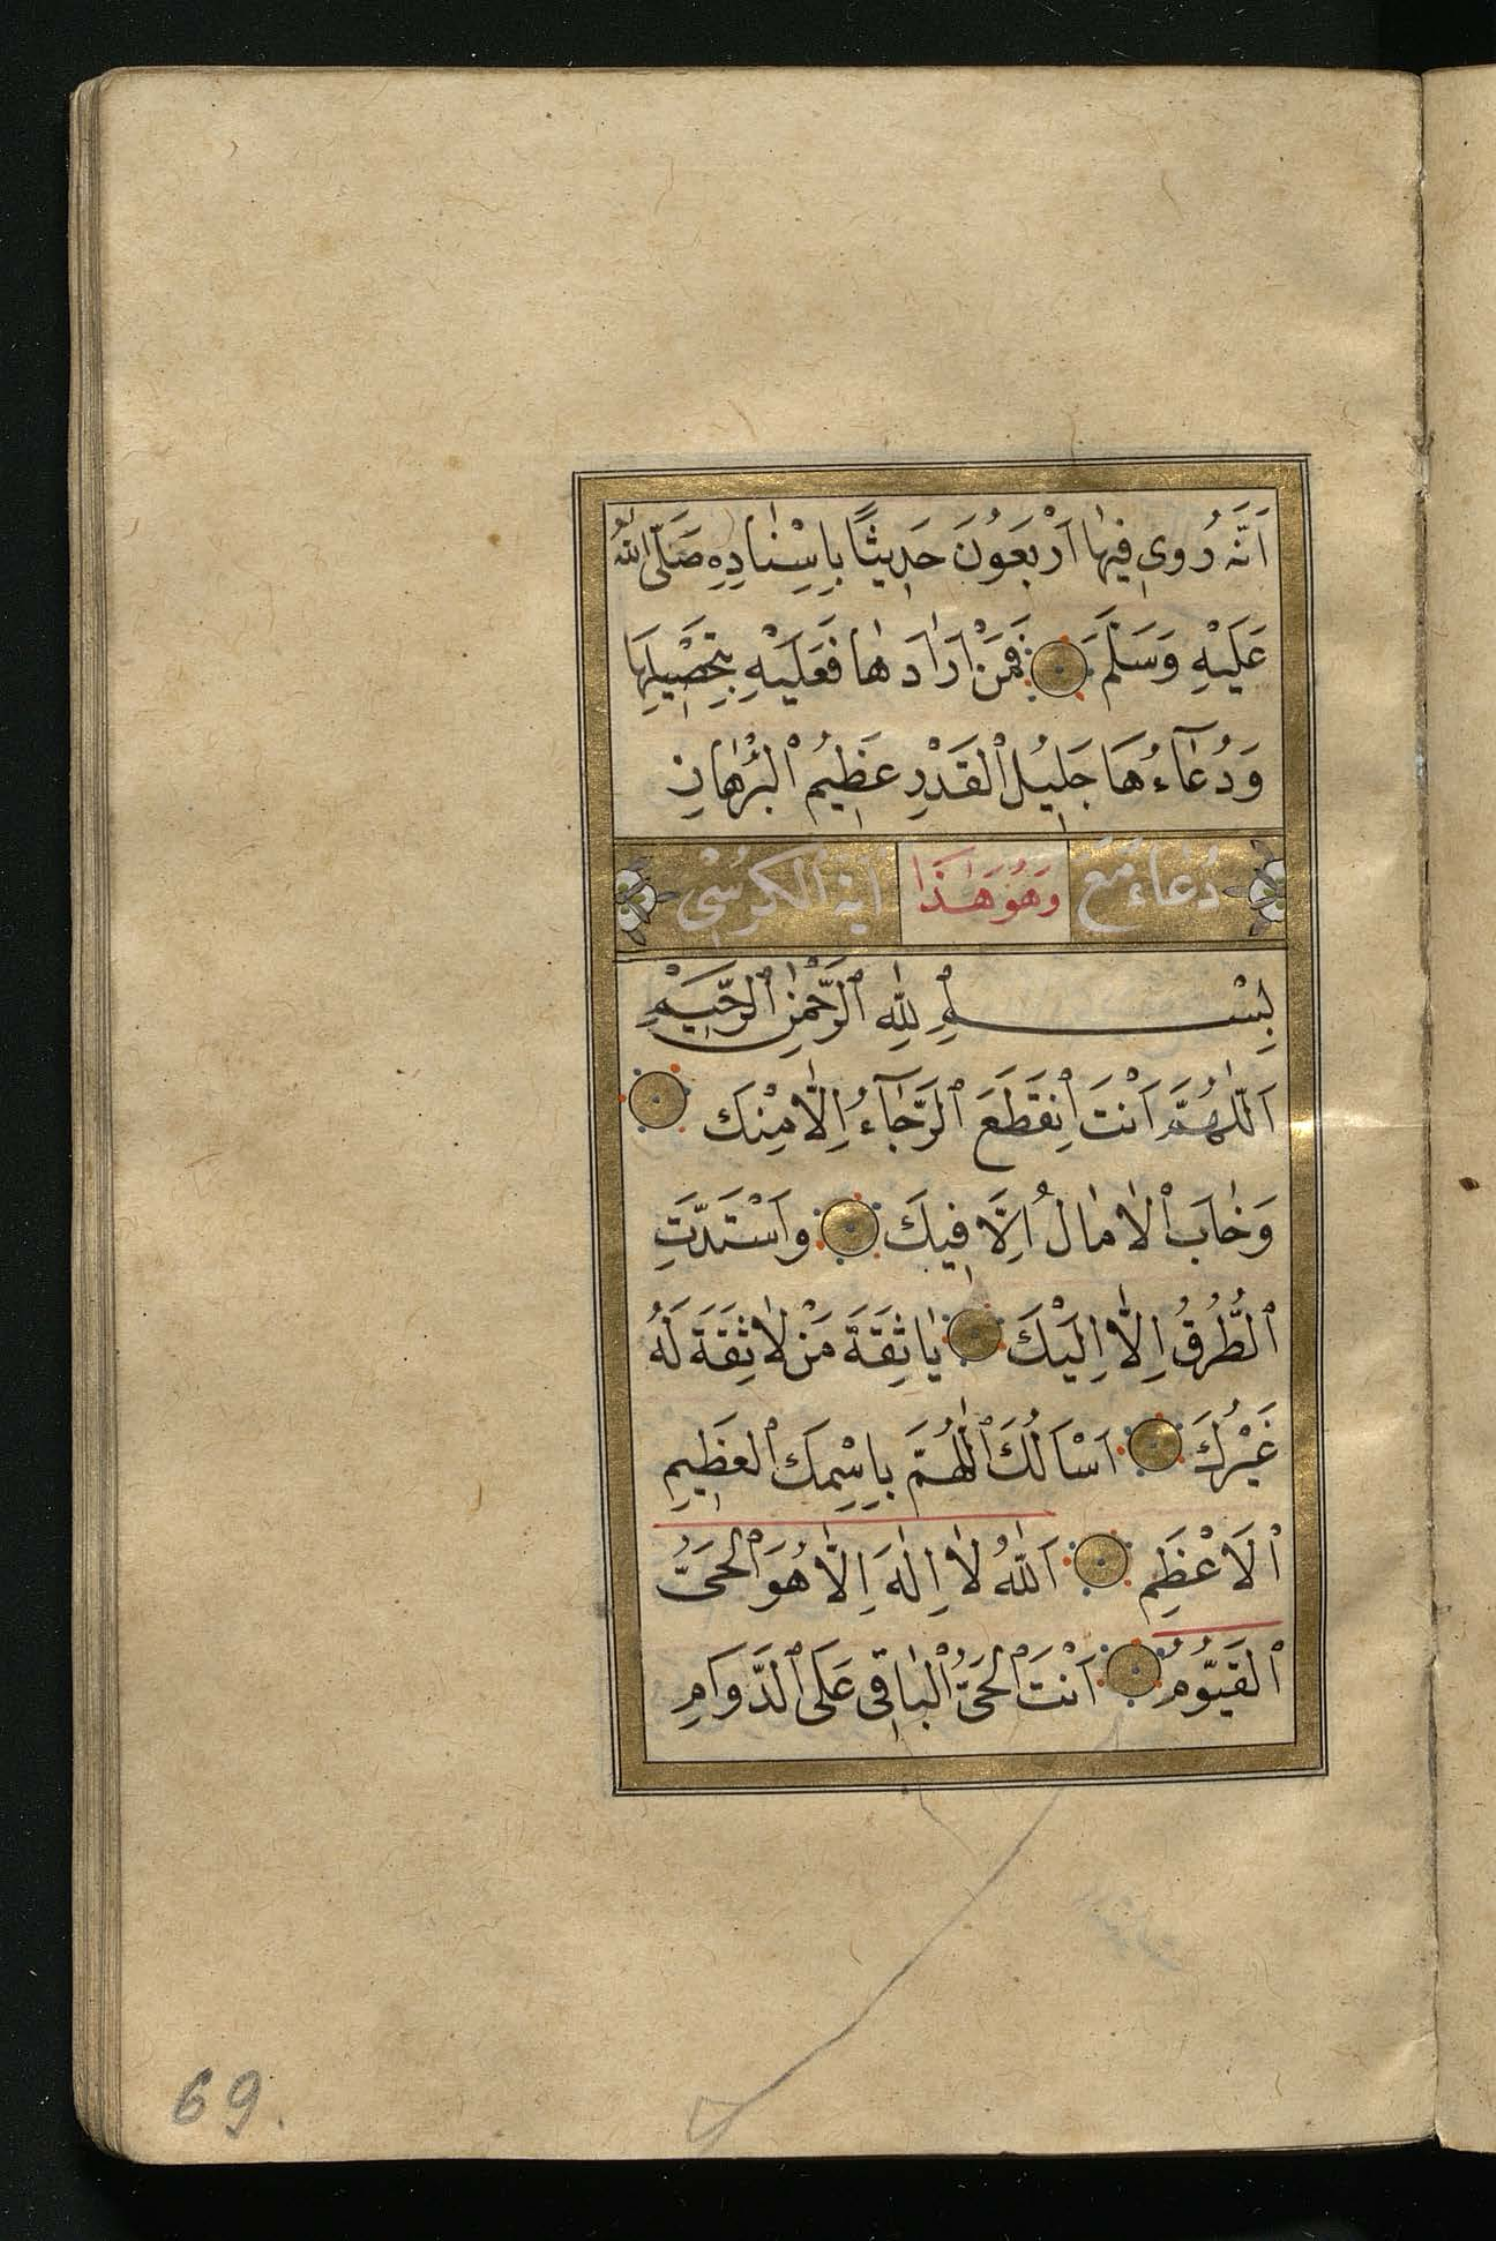 اَنَّهُ رُوِىَ فِيهَا اَرْبَعُونَ حَدِيثًا بِاِسْنَادِهِ صَلَّى اللهُ
عَلَيْهِ وَسَلَّمَ فَمَنْ اَرَادَهَا فَعَلَيْهِ بِتَحْصِيلِهَا
وَدُعَاءُهَا جَلِيلُ الْقَدْرِ عَظِيمُ الْبُرْهَانِ
دُعَاء مَعَ وَهُوَ هَذَا اٰية الكرسى
بِسْمِ للهِ الرَّحْمٰنِ الرَّحِيمِ
اَللّٰهُمَّ اَنْتَ اِنْقَطَعَ الرَّجَآءُ اِلَّا مِنْكَ
وَخَابَ الْاٰمَالُ اِلَّا فِيكَ وَاسْتَدَّتِ
الطُّرُقُ اِلَّا اِلَيْكَ يَا ثِقَةَ مَنْ لَا ثِقَةَ لَهُ
غَيْرُكَ اَسْاَلُكَ اللّٰهُمَّ بِاِسْمِكَ الْعَظِيمِ
الْاَعْظَمِ اَللهُ لَا اِلٰهَ اِلَّا هُوَ الْحَىُّ
الْقَيُّومُ اَنْتَ الْحَىُّ الْبَاقِى عَلَى الدَّوَامِ
69.